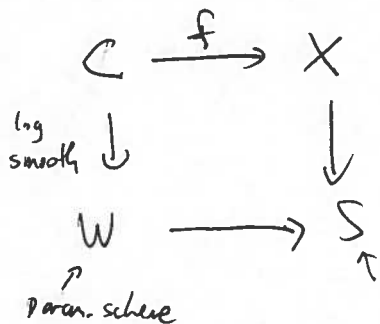 f
C X
log
smooth
W S
param. scheme